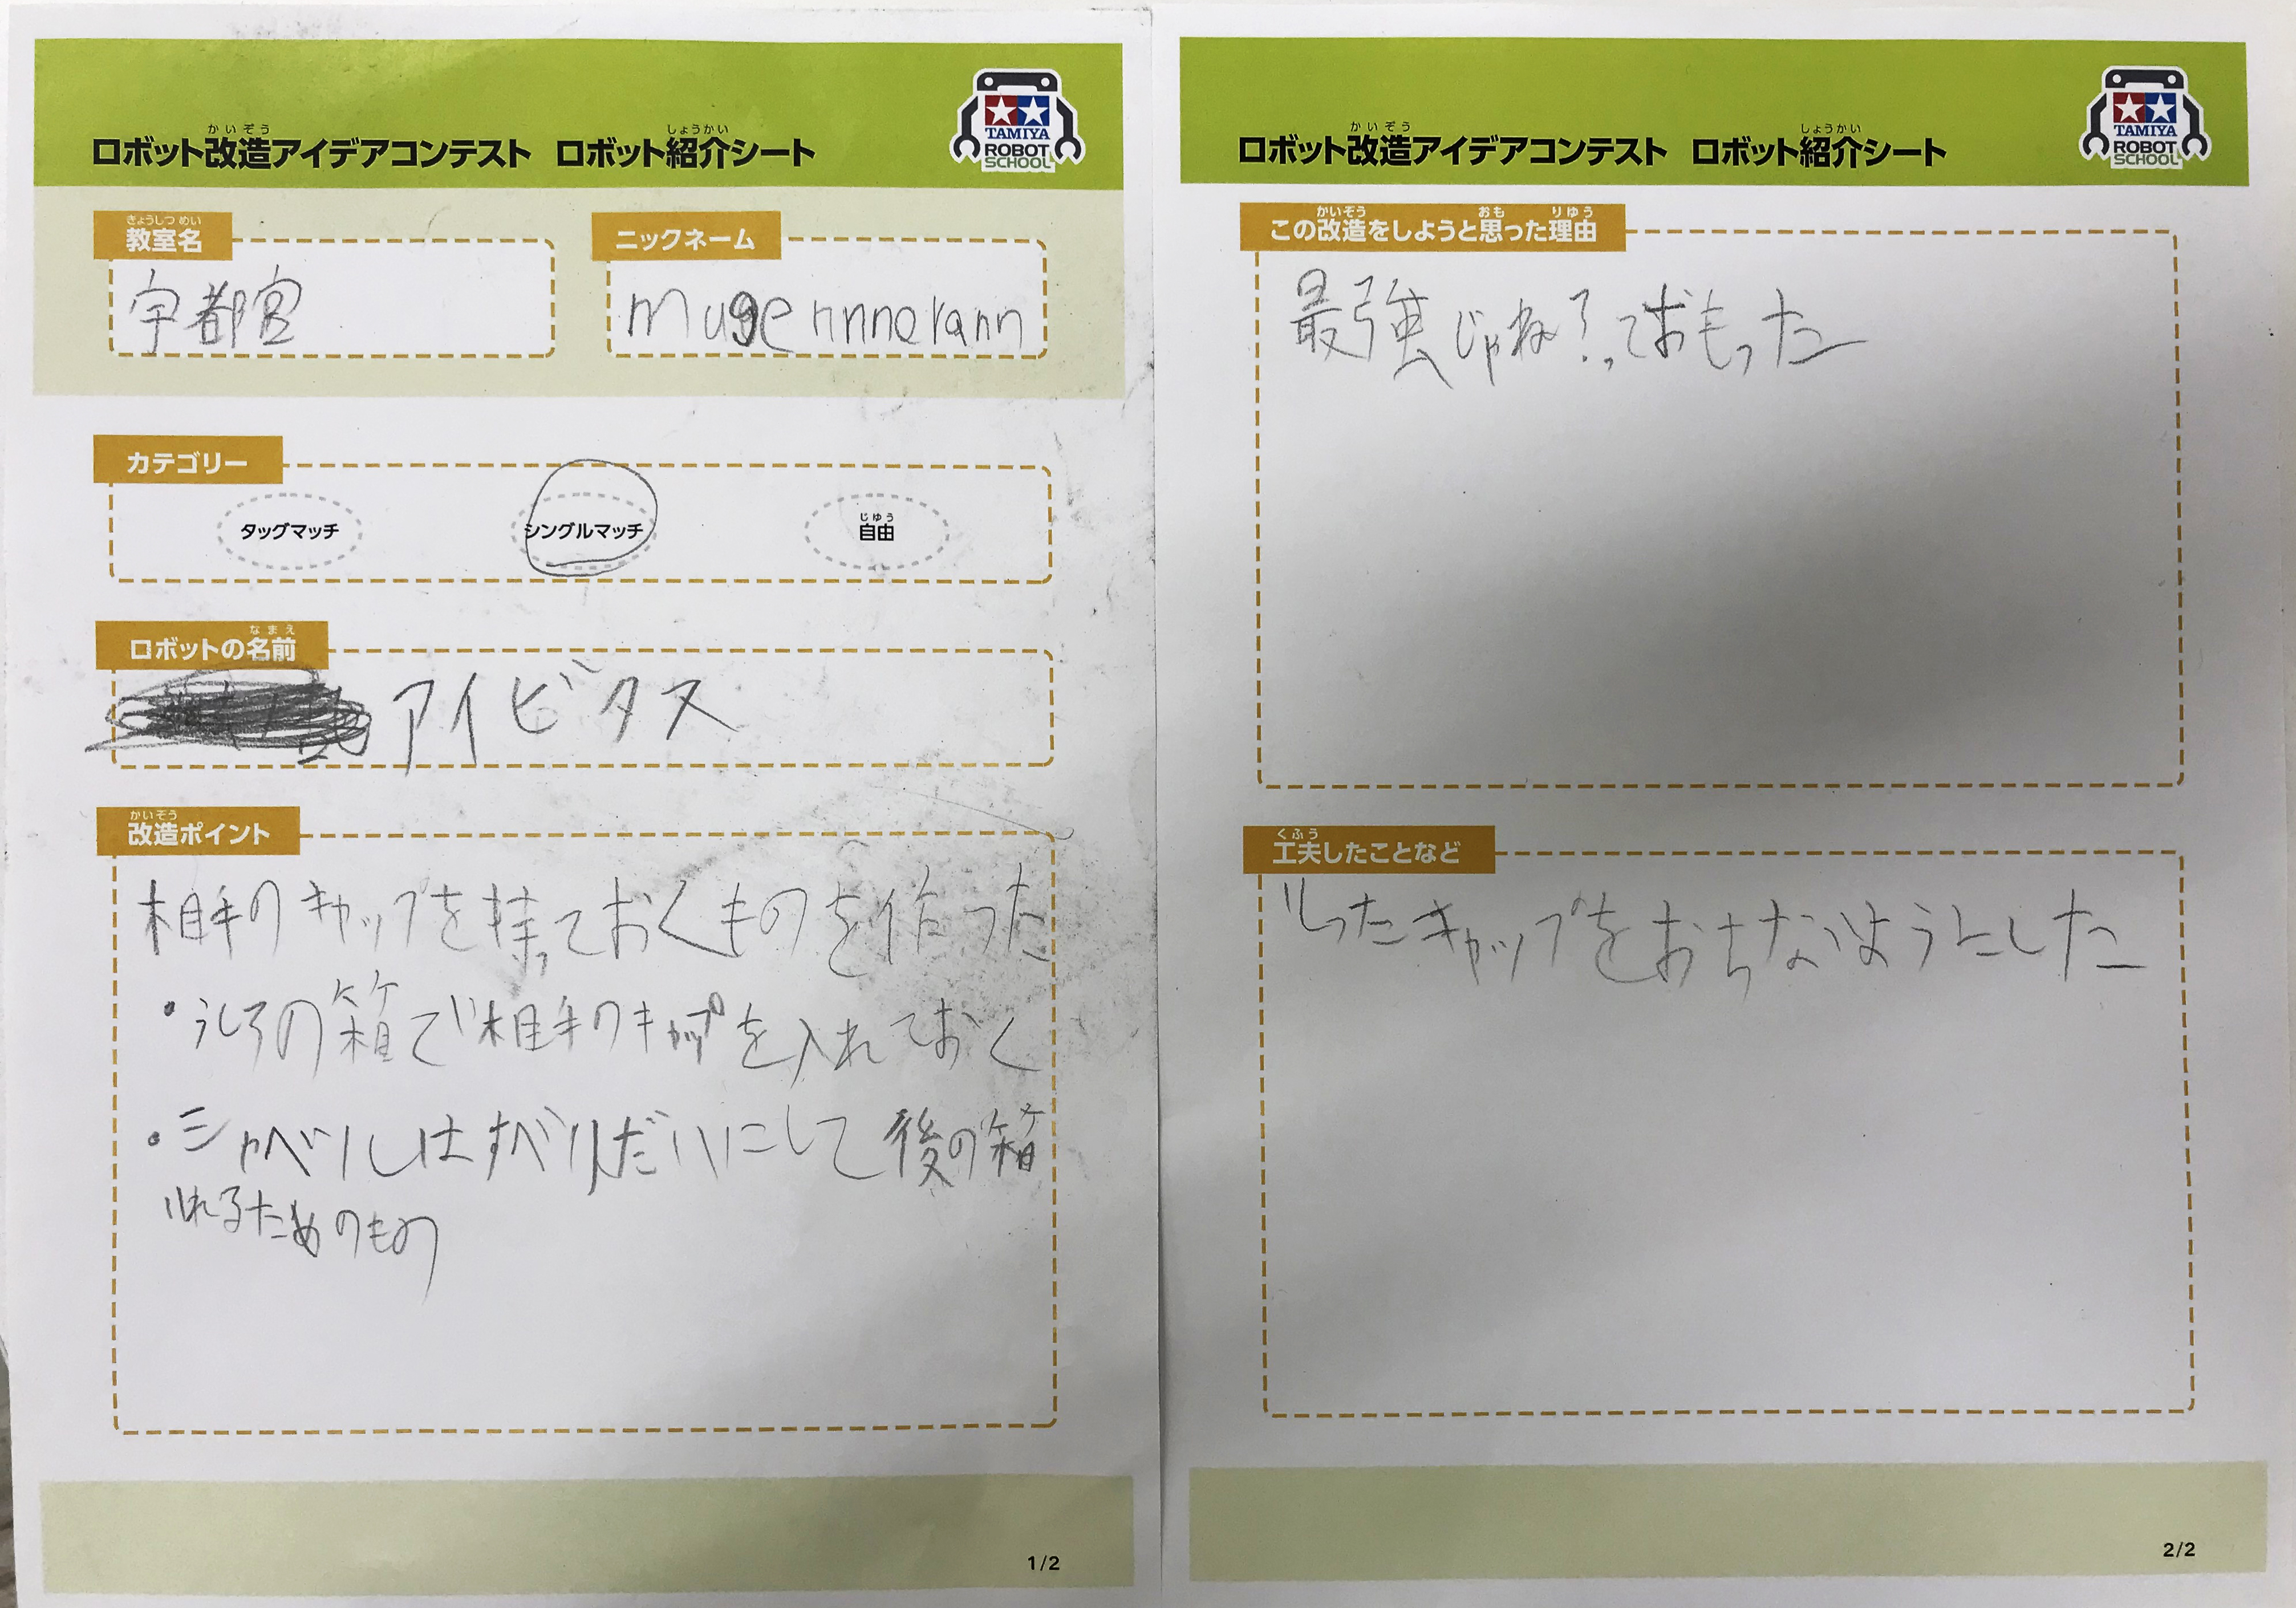 かいぞう しょうかい
ロボット改造アイデアコンテスト ロボット紹介シート
TAMIYA
ROBOT
SCHOOL
きょうしつ めい
教室名
宇都宮
ニックネーム
mugennnnerann
カテゴリー
タッグマッチ
シングルマッチ
じゆう
自由
なまえ
ロボットの名前
アイビタス
かいぞう
改造ポイント
相手のキャップを持っておくものを作った
・うしろの箱で相手のキャップを入れておく
・シャベルはすべりだいにして後の箱
いれるためのもの
1/2
かいぞう しょうかい
ロボット改造アイデアコンテスト ロボット紹介シート
TAMIYA
ROBOT
SCHOOL
かいぞう おも りゆう
この改造をしようと思った理由
最強じゃね？っておもった
くふう
工夫したことなど
キャップをおちないようにした
2/2